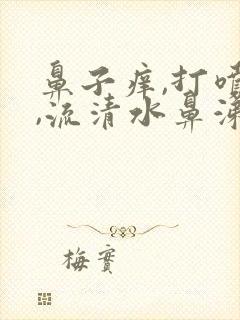 鼻子痒,打喷
,流清水鼻涕
梅實